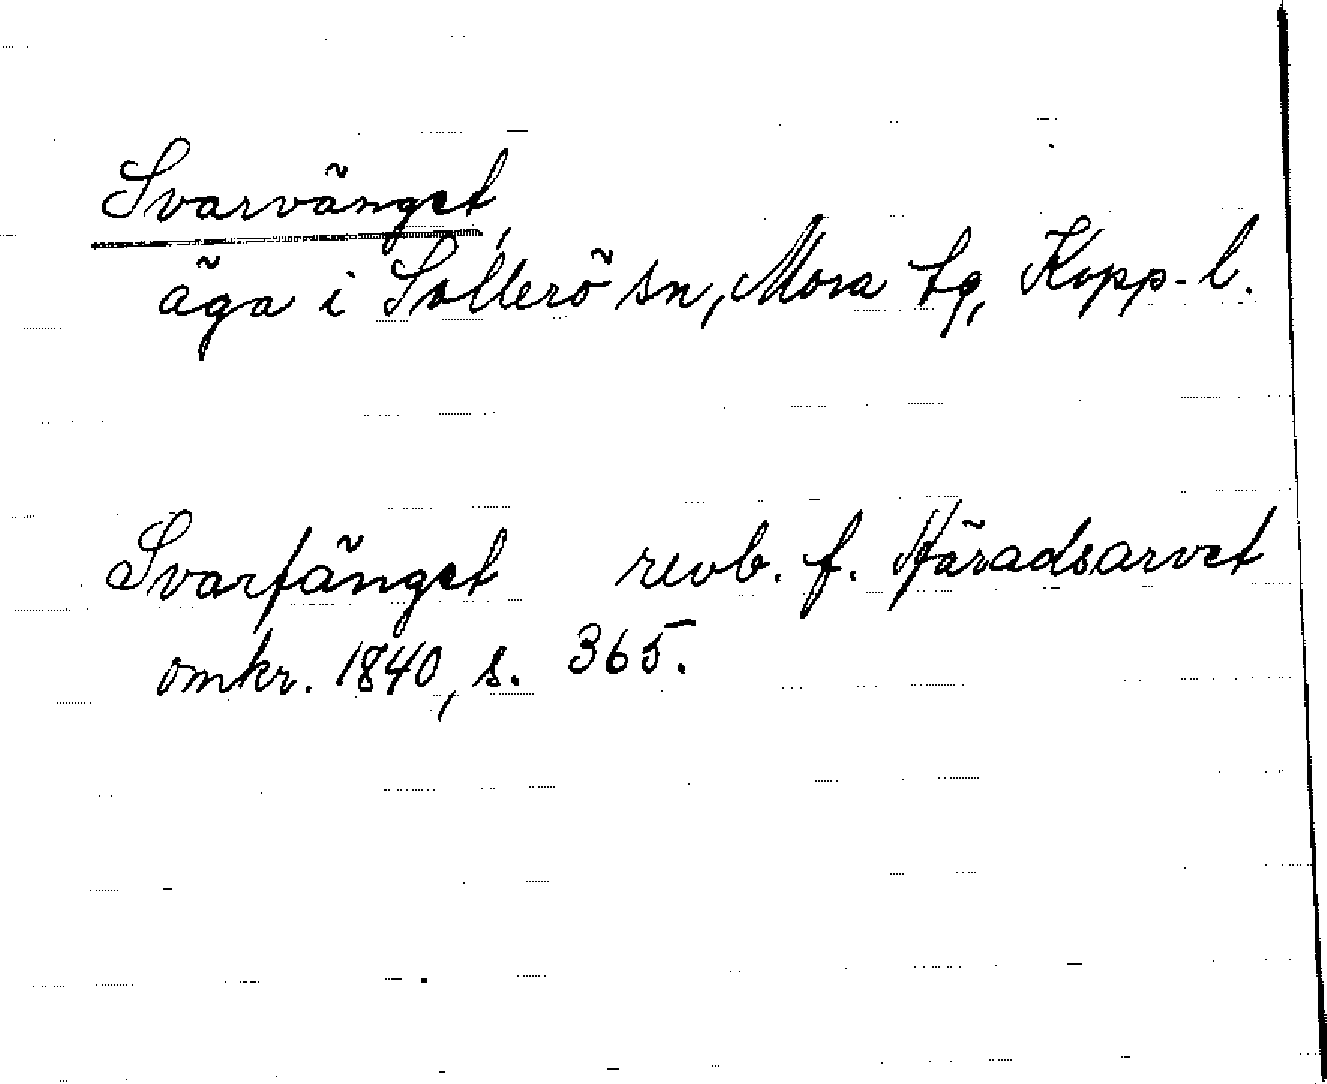 Svarvänget,
äga i Sollerö sn, Mora tg, Kopp-l.
Svarfänget revb. f. Häradsarvet
omkr. 1840, s. 365.